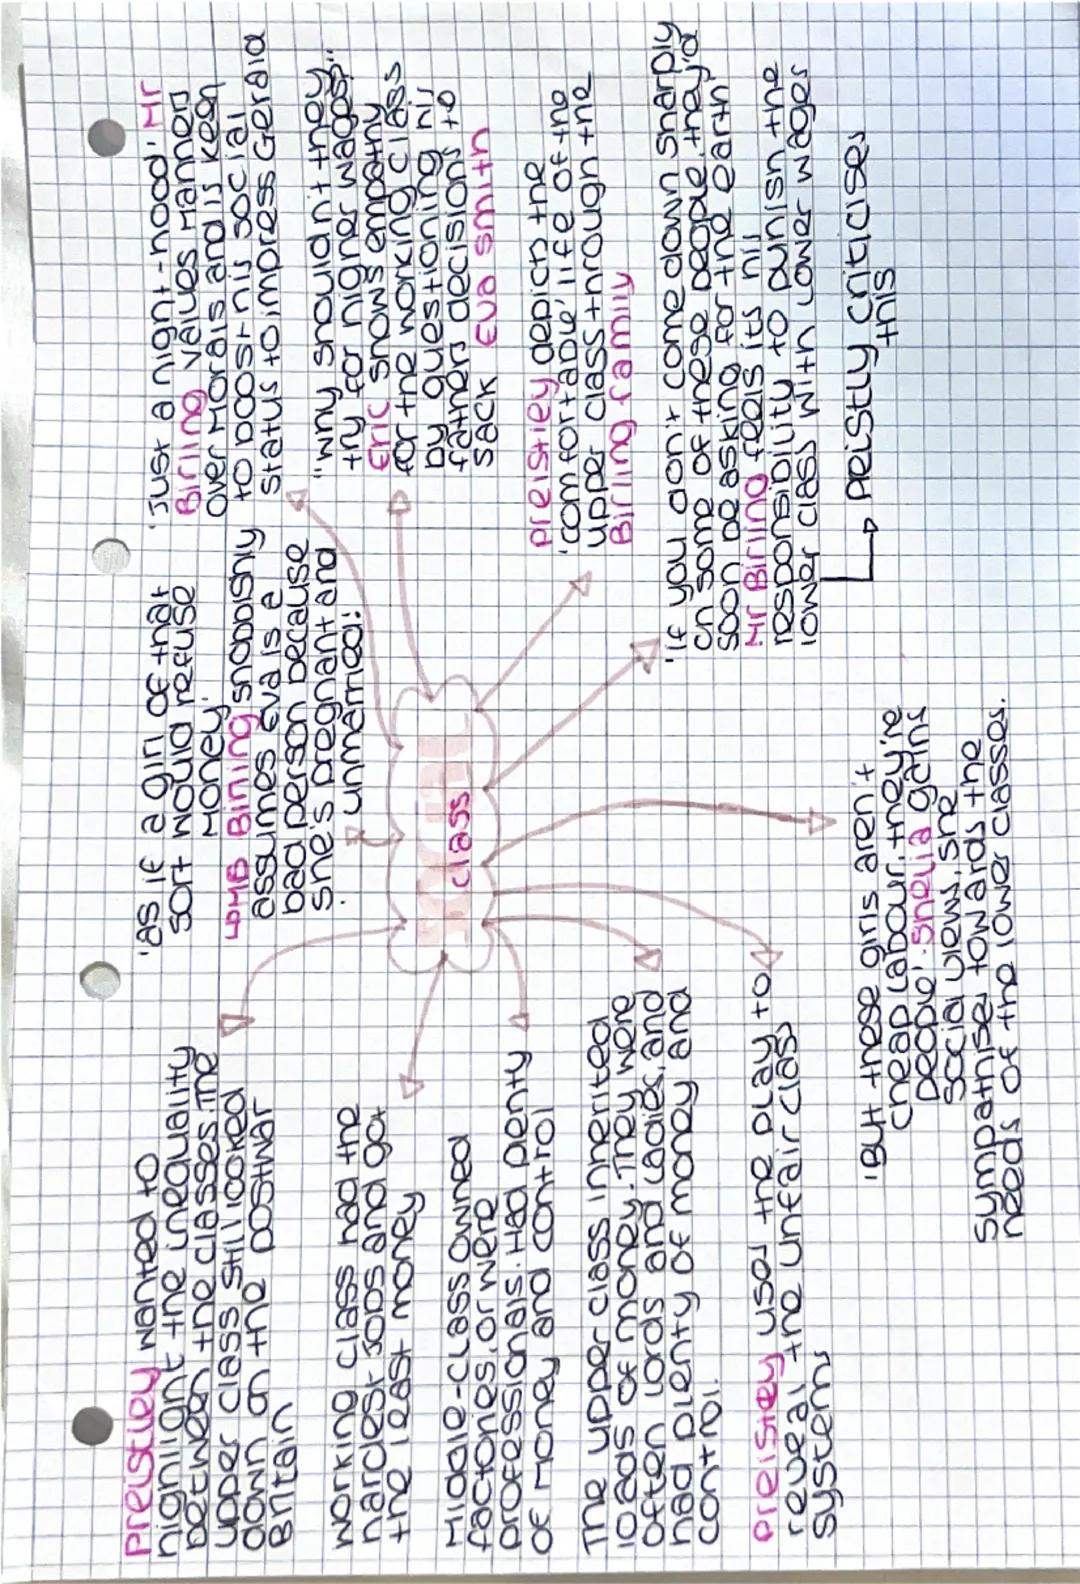 social
class
Preistley wanted to
highlight the inequality
between the classes. The
upper class still looked
down on the postwar
Britain
working class had the
hardest jobs and got
the least money
Middle-class owned
factories, or were
professionals. Had plenty
of money and control
The upper class inherited
loads of money. They were
often lords and ladies, and
had plenty of money and
control.
preistley used the play to
reveal the unfair class
systems
'As if a girl of that
sort would refuse
money'
Birling snobbishly
assumes eva is a
bad person because
she's pregnant and
unmarried!
'Just a knight-hood'. Mr
Birling values manners
over morals and is keen
to boost his social
status to impress Gerald
'why shouldn't they
try for higher wages?'
Eric shows empathy
for the working class
by questioning his
fathers decisions to
sack Eva smith
preistley depicts the
'comfortable' life of the
upper class through the
Birling family
'If you don't come down sharply
on some of these people, they'd
soon be asking for the earth'
Mr Birling feels its his
responsibility to punish the
lower class with lower wages
Peistly criticises
this
'But these girls aren't
cheap labour. they're
people'. sheila gains
social views, she
sympathises towards the
needs of the lower classes.